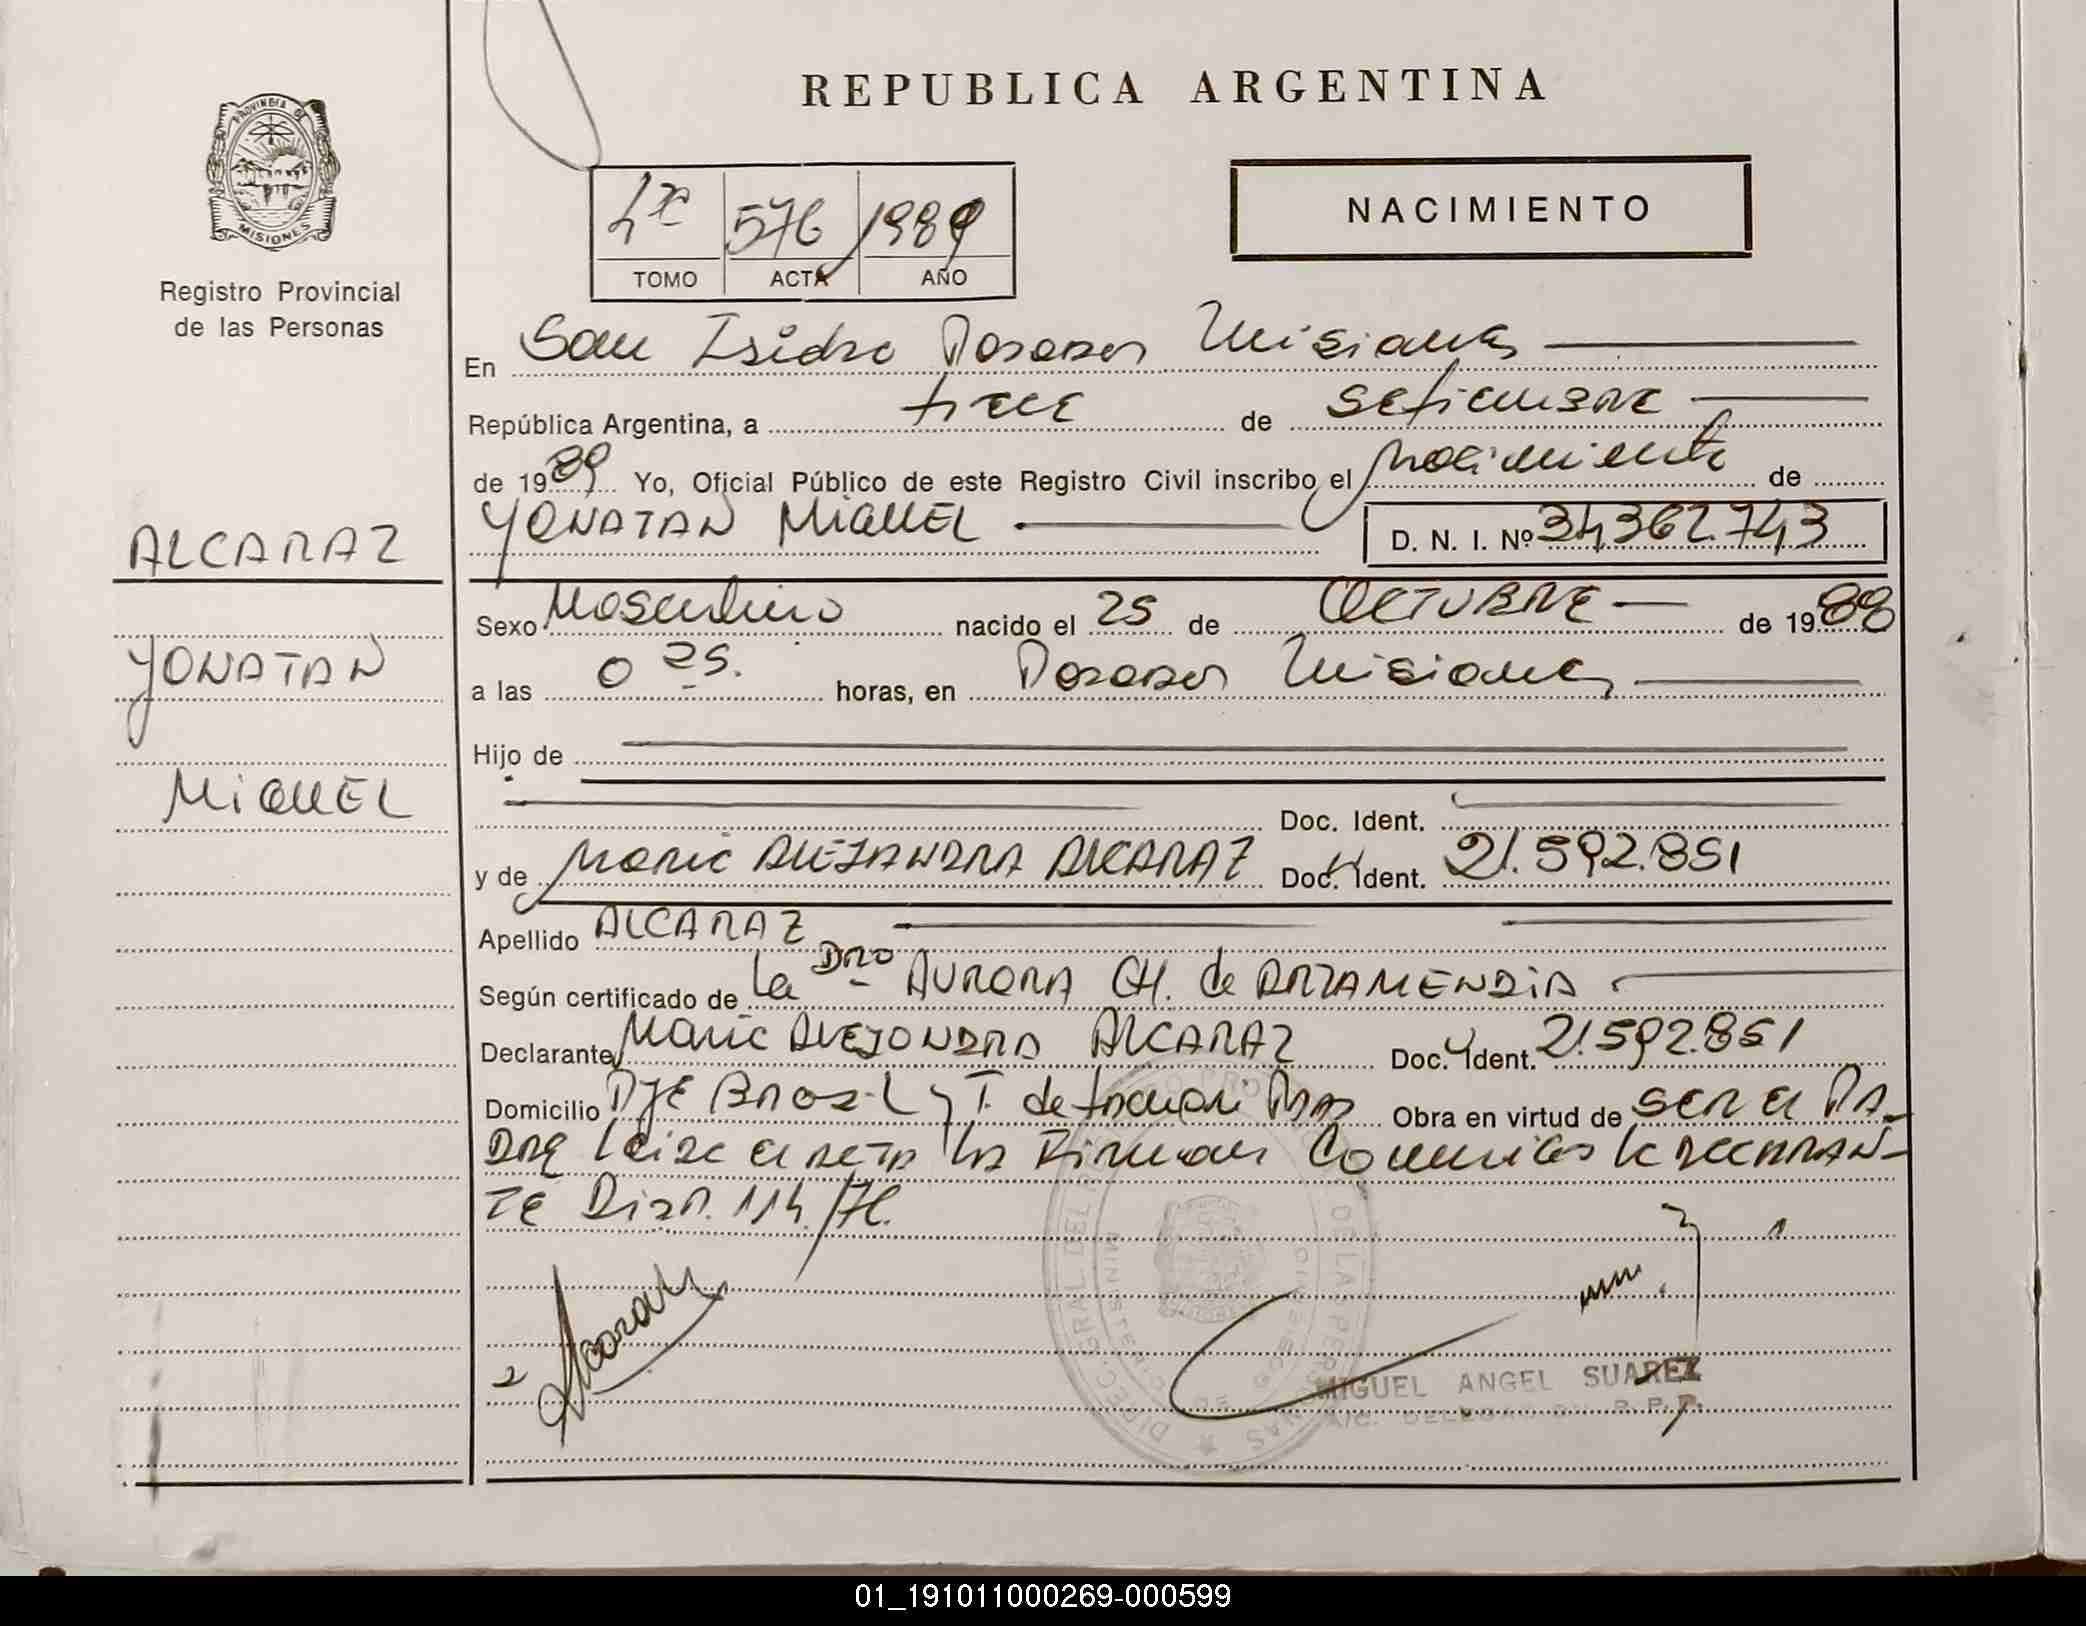 REPUBLICA ARGENTINA
PROVINCIA DE
MISIONES
Registro Provincial
de las Personas
576 1989
TOMO ACTA AÑO
NACIMIENTO
En San Isidro Posadas Misiones
República Argentina, a trece de setiembre
de 1989 Yo, Oficial Público de este Registro Civil inscribo el nacimiento de
YONATAN MIGUEL D. N. I. Nº 34.362.743
ALCARAZ
YONATAN
MIGUEL
Sexo Masculino nacido el 25 de OCTUBRE de 1988
a las 0 25. horas, en Posadas Misiones
Hijo de
Doc. Ident.
y de Maria ALEJANDRA ALCARAZ Doc. Ident. 21.592.851
Apellido ALCARAZ
Según certificado de la Dra AURORA CH. de ARZAMENDIA
Declarante Maria ALEJANDRA ALCARAZ Doc. Ident. 21.592.851
Domicilio PJE BRASIL y T. de Obra en virtud de SER el PA-
DRE Leida el ACTA la Firman Conmigo la DECLARAN-
TE Disp. 114/76.
Alcaraz
MIGUEL ANGEL SUAREZ
A/C. DELEGACION R.P.P.
01_191011000269-000599